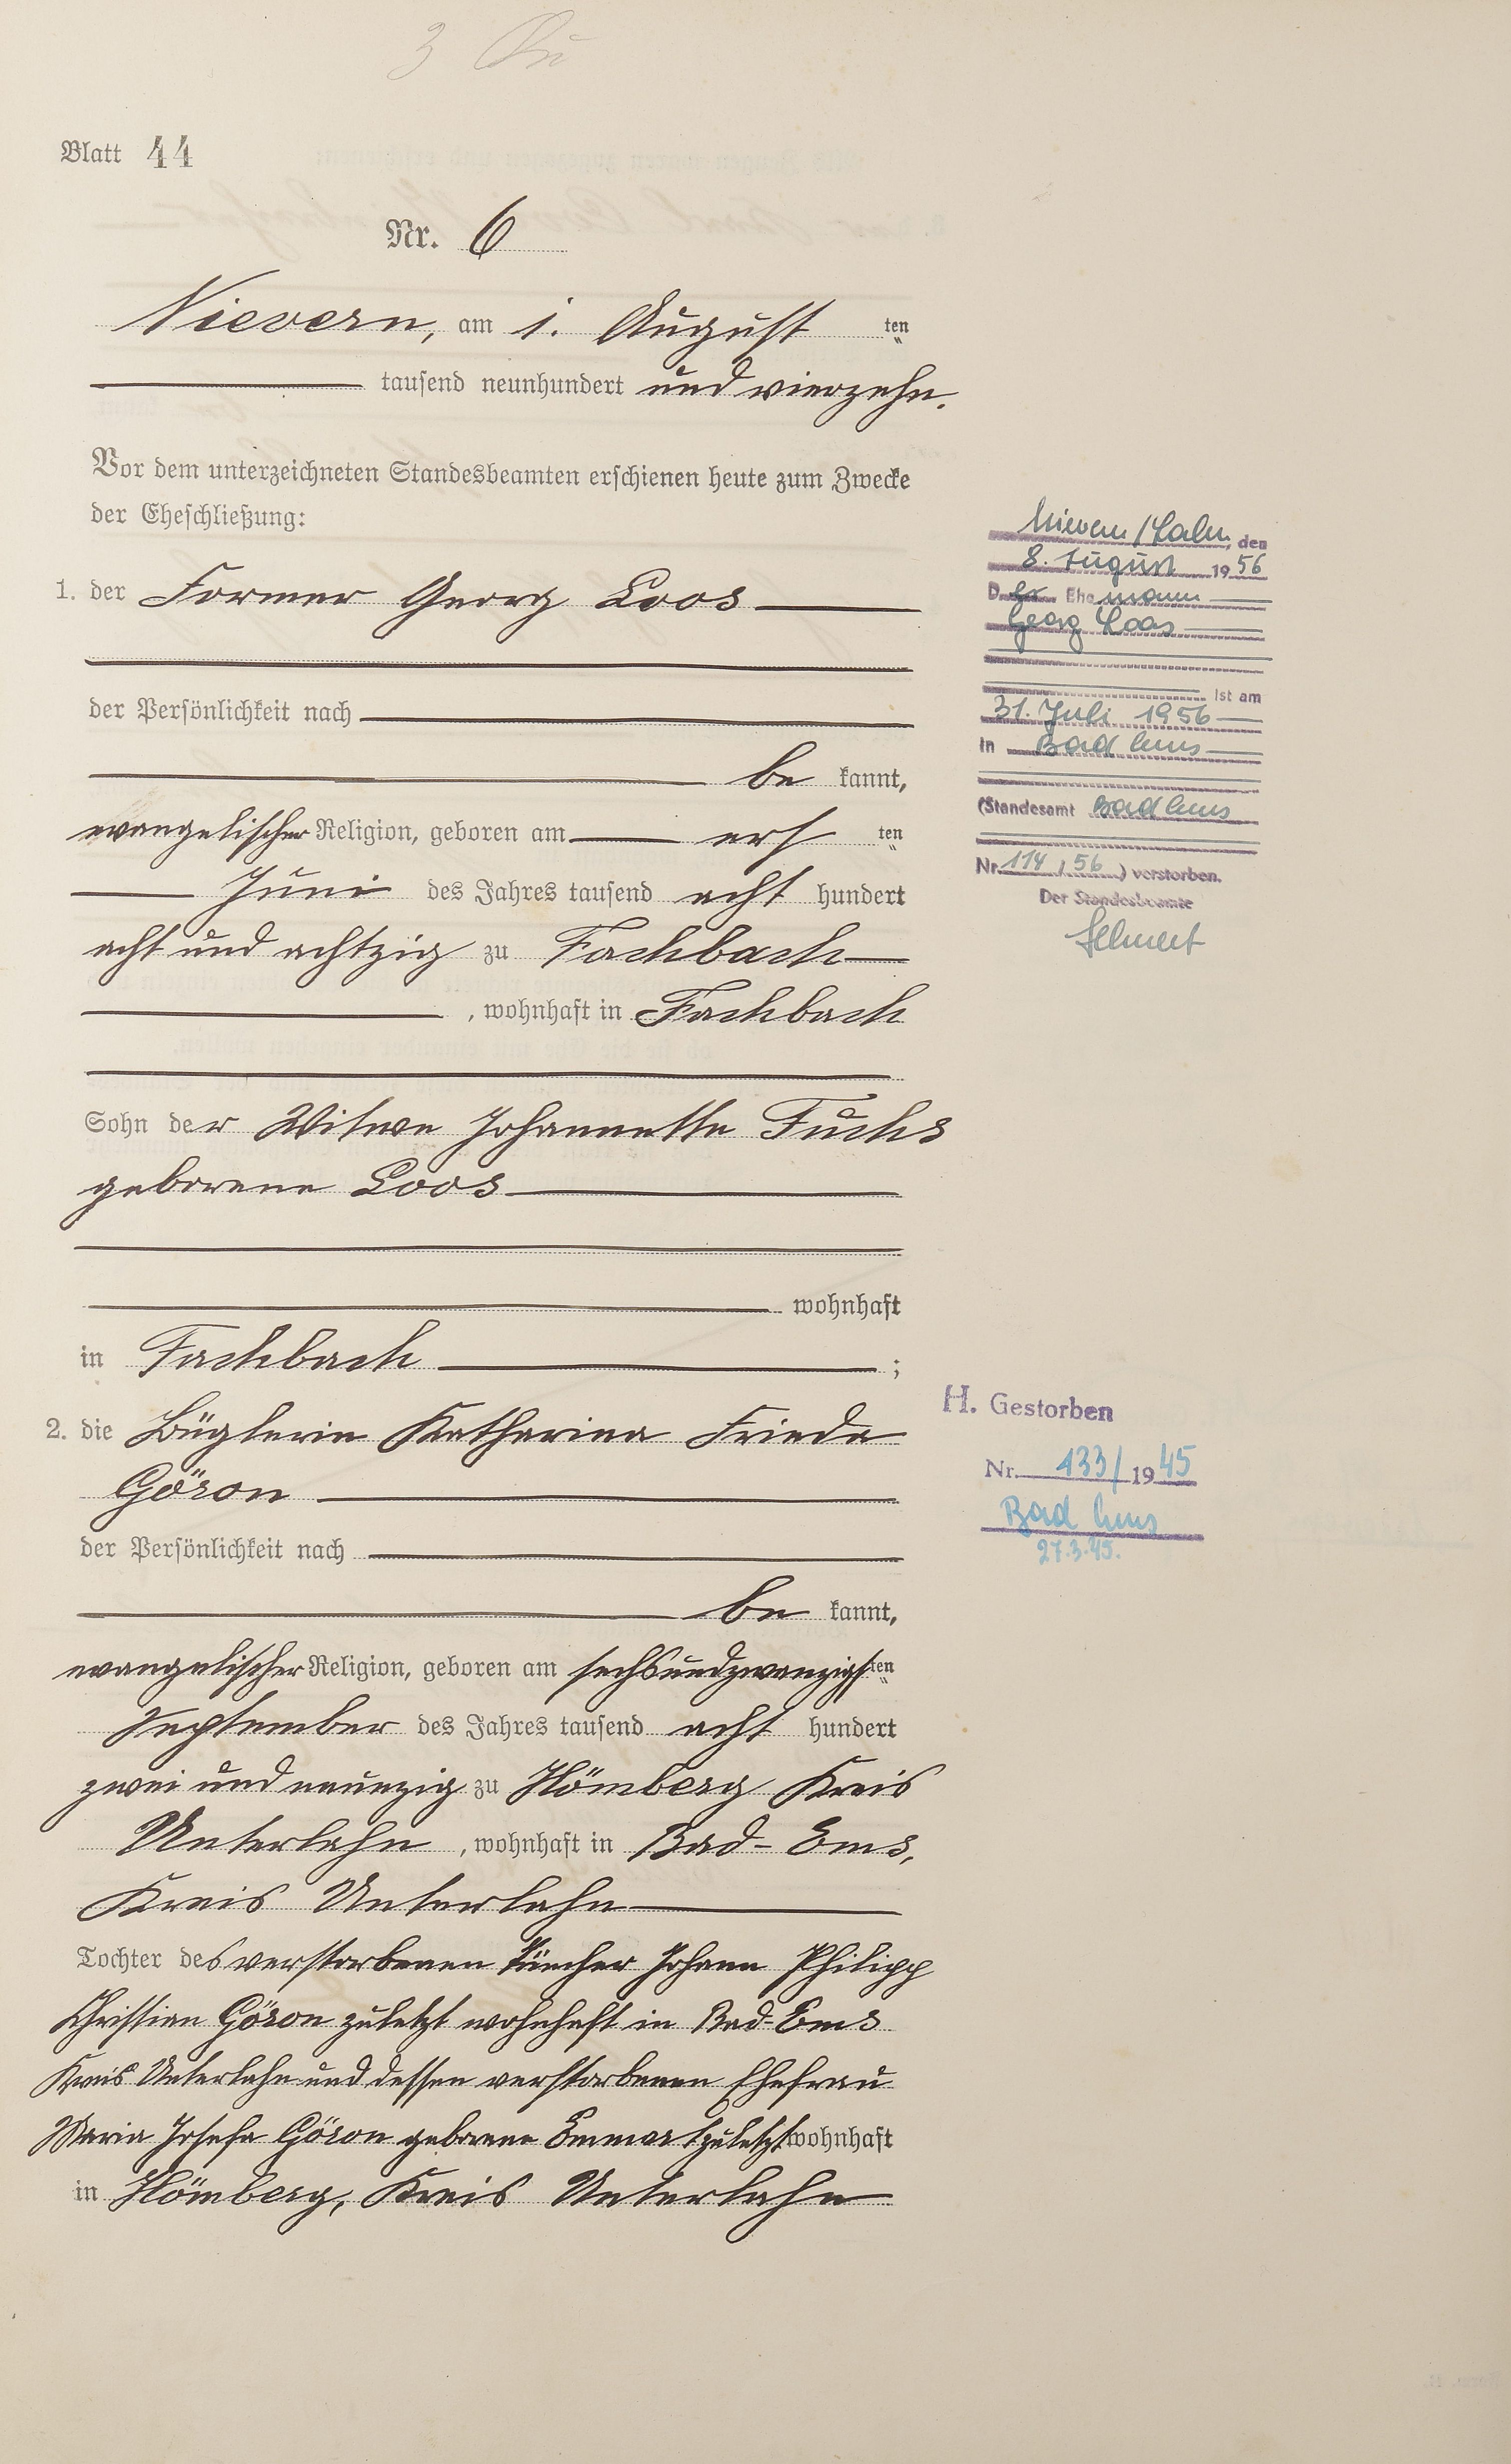 Blatt 44
Nr. 6
Nievern, am 1. August ten
tausend neunhundert und vierzehn.
Vor dem unterzeichneten Standesbeamten erschienen heute zum Zwecke
der Eheschließung:
1. der Former Georg Loos
der Persönlichkeit nach
be kannt,
evangelischer Religion, geboren am ers ten
Juni des Jahres tausend acht hundert
acht und achtzig zu Fachbach
, wohnhaft in Fachbach
Sohn der Witwe Johannette Fuchs
geborene Loos
wohnhaft
in Fachbach ;
2. die Büglerin Katharina Frieda
Göron
der Persönlichkeit nach
be kannt,
evangelischer Religion, geboren am sechsundzwanzigsten
September des Jahres tausend acht hundert
zwei und neunzig zu Hömberg Kreis
Unterlahn, wohnhaft in Bad-Ems,
Kreis Unterlahn
Tochter des verstorbenen Tüncher Johann Philipp
Christian Göron zuletzt wohnhaft in Bad-Ems
Kreis Unterlahn und dessen verstorbenen Ehefrau
Maria Josefa Göron geborene zuletzt wohnhaft
in Hömberg, Kreis Unterlahn
Nievern/Lahn, den
8. August 1956
Der Ehemann
Georg Loos
ist am
31. Juli 1956
in Bad Ems
(Standesamt Bad Ems
Nr. 114/56) verstorben.
Der Standesbeamte
H. Gestorben
Nr. 133/1945
Bad Ems
27.3.45.